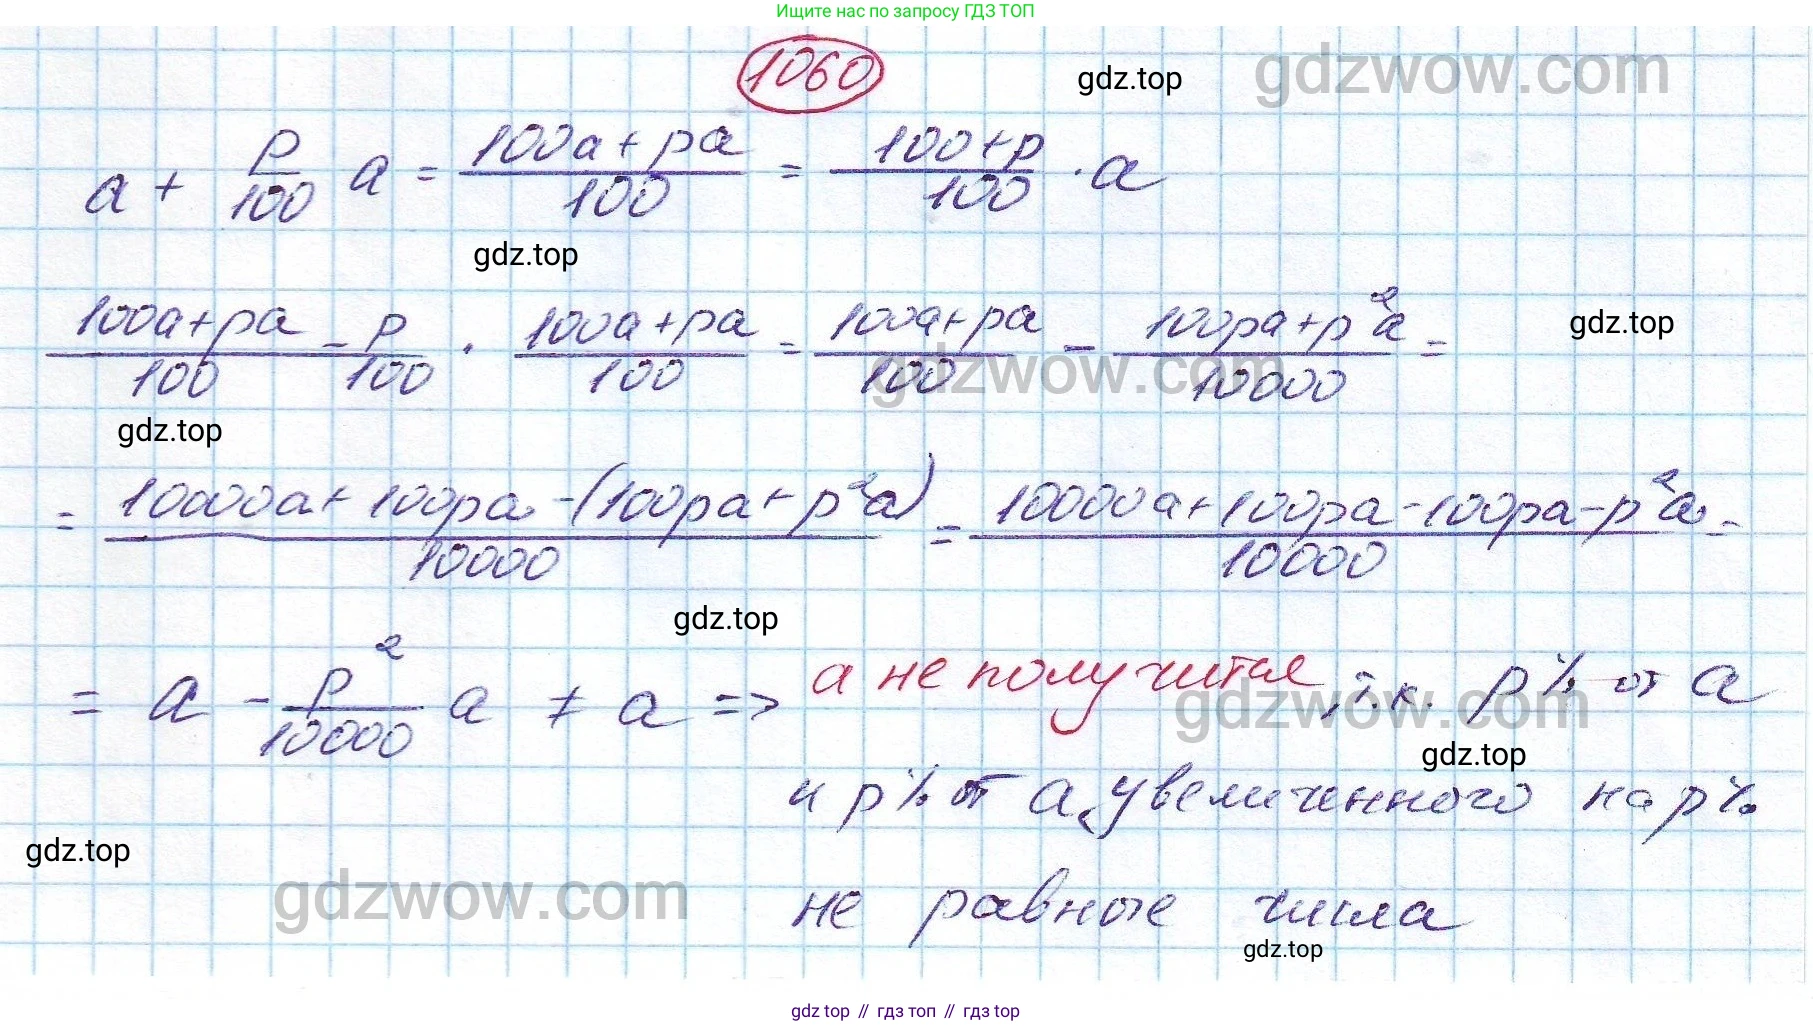 Ищите нас по запросу ГДЗ ТОП
1060
gdz.top
gdzwow.com
a + p/100 a = (100a + pa)/100 = (100 + p)/100 · a
gdz.top
(100a + pa)/100 - p/100 · (100a + pa)/100 = (100a + pa)/100 - (100pa + p²a)/10000 =
gdz.top
gdzwow.com
gdz.top
= (10000a + 100pa - (100pa + p²a))/10000 = (10000a + 100pa - 100pa - p²a)/10000 =
gdz.top
= a - p²/10000 a ≠ a => а не получится, т.к. p% от a
gdzwow.com
gdz.top
и p% от a, увеличенного на p%
gdz.top
gdzwow.com
не равные числа
gdz.top
gdz top // гдз топ // гдз top